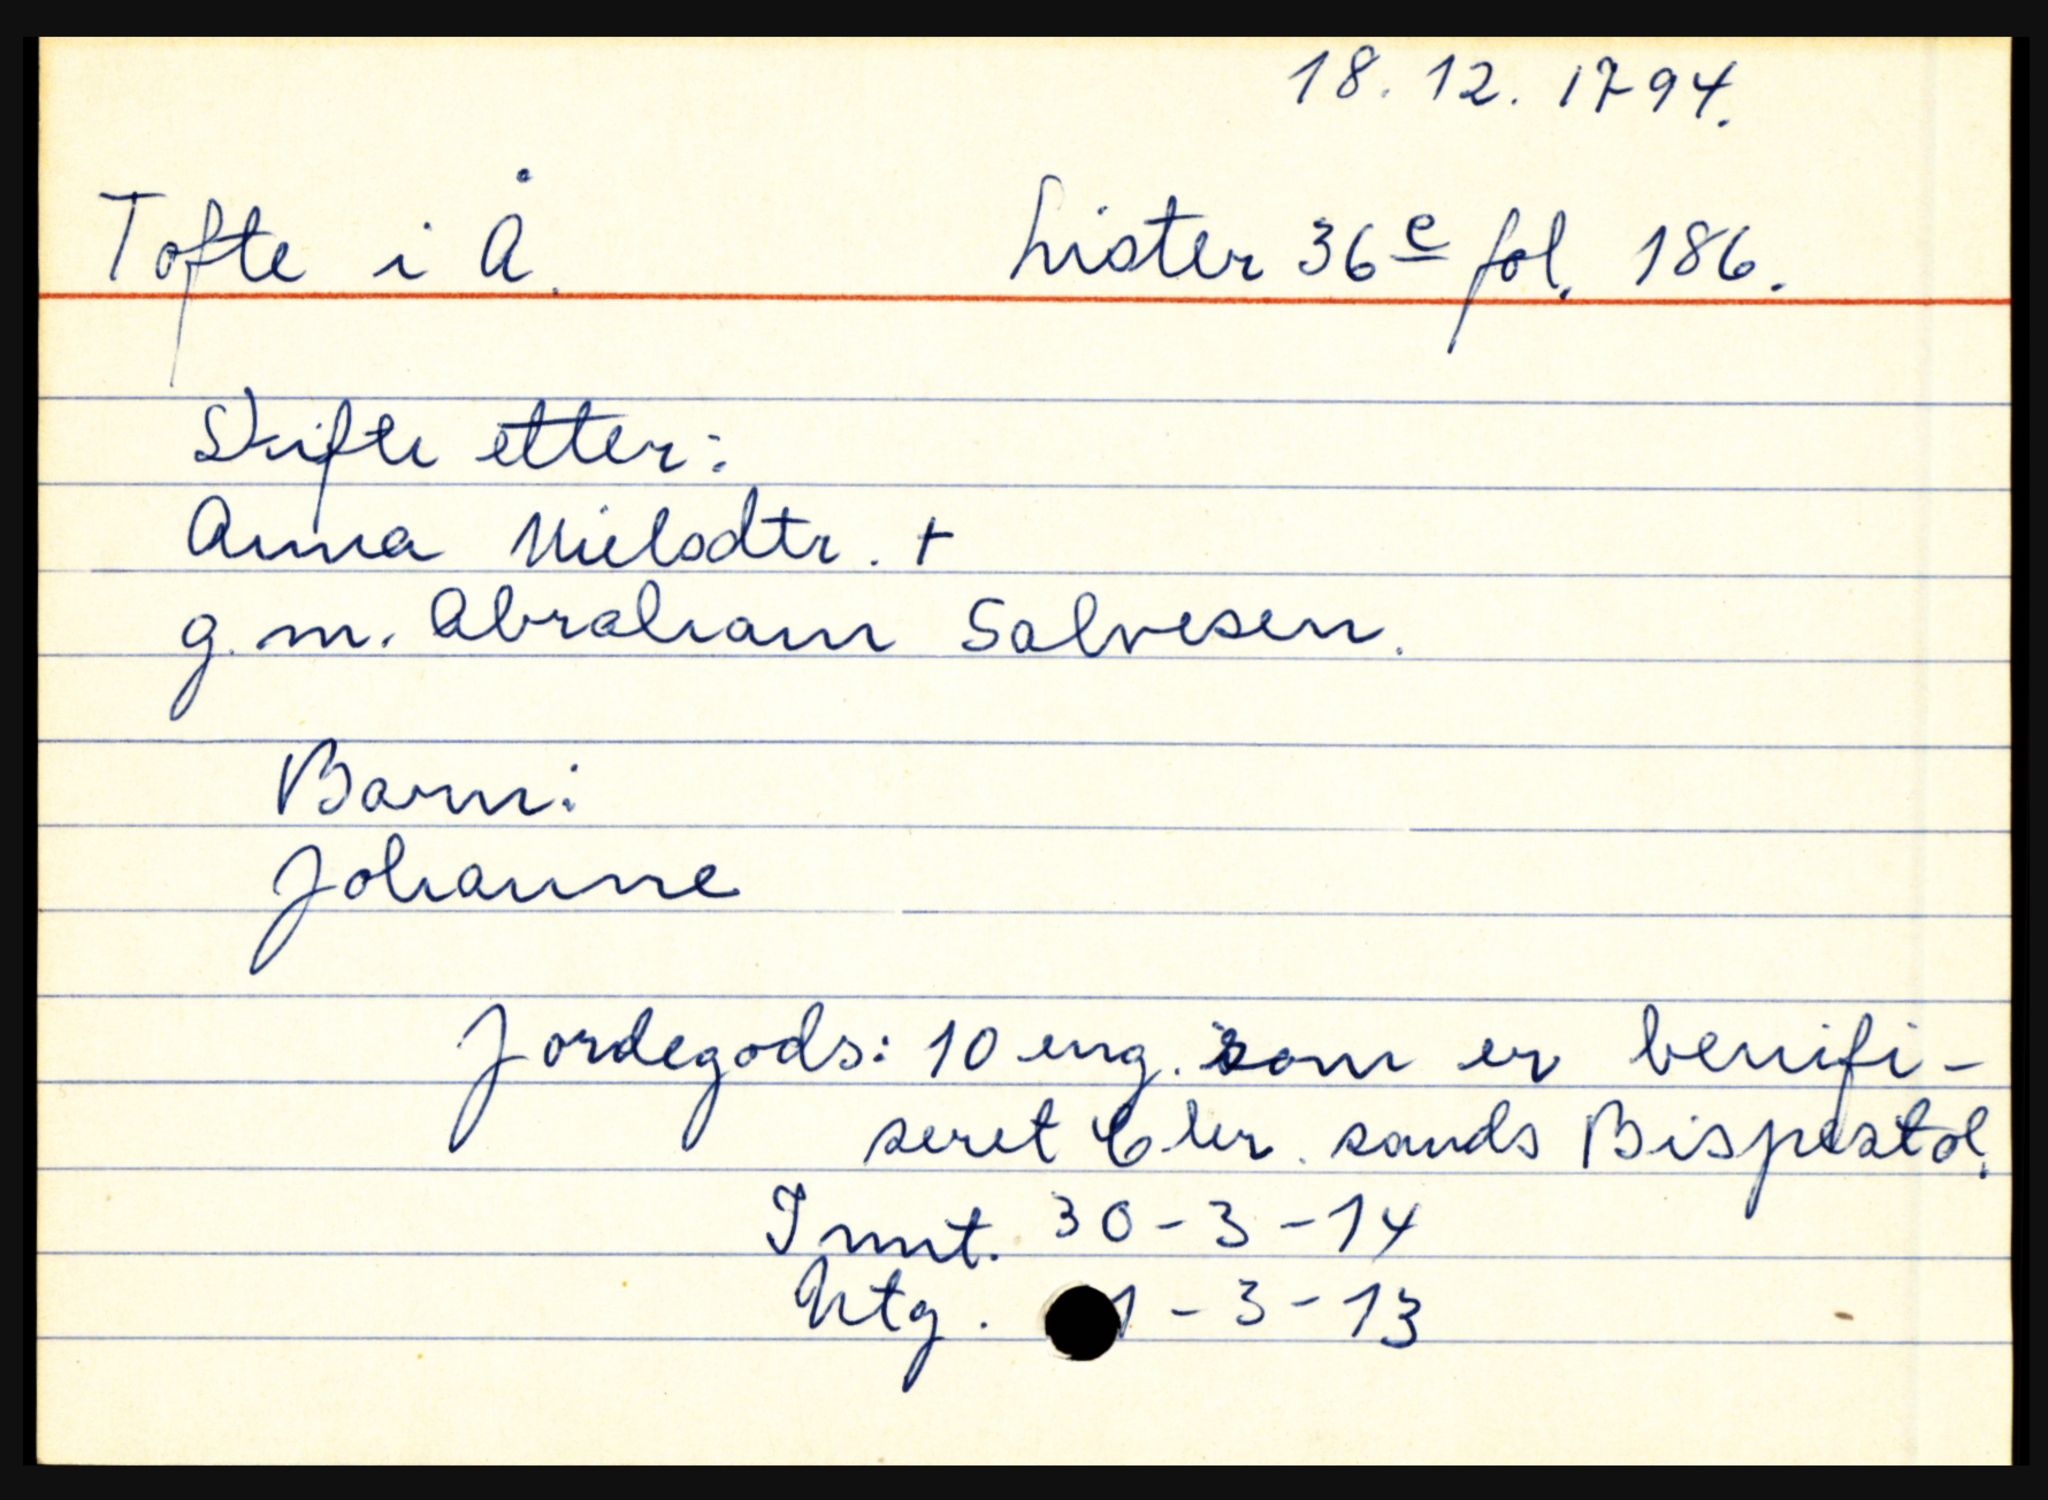 18. 12. 1794.
Tofte i Å. Lister 36 e fol. 186.
Skifte etter:
Anna Nielsdtr. +
g. m. Abraham Salvesen.
Barn:
Johanne
Jordegods: 10 eng. som er benifi-
seret Chr. sands Bispestol.
Innt. 30-3-14
Utg. 1-3-13